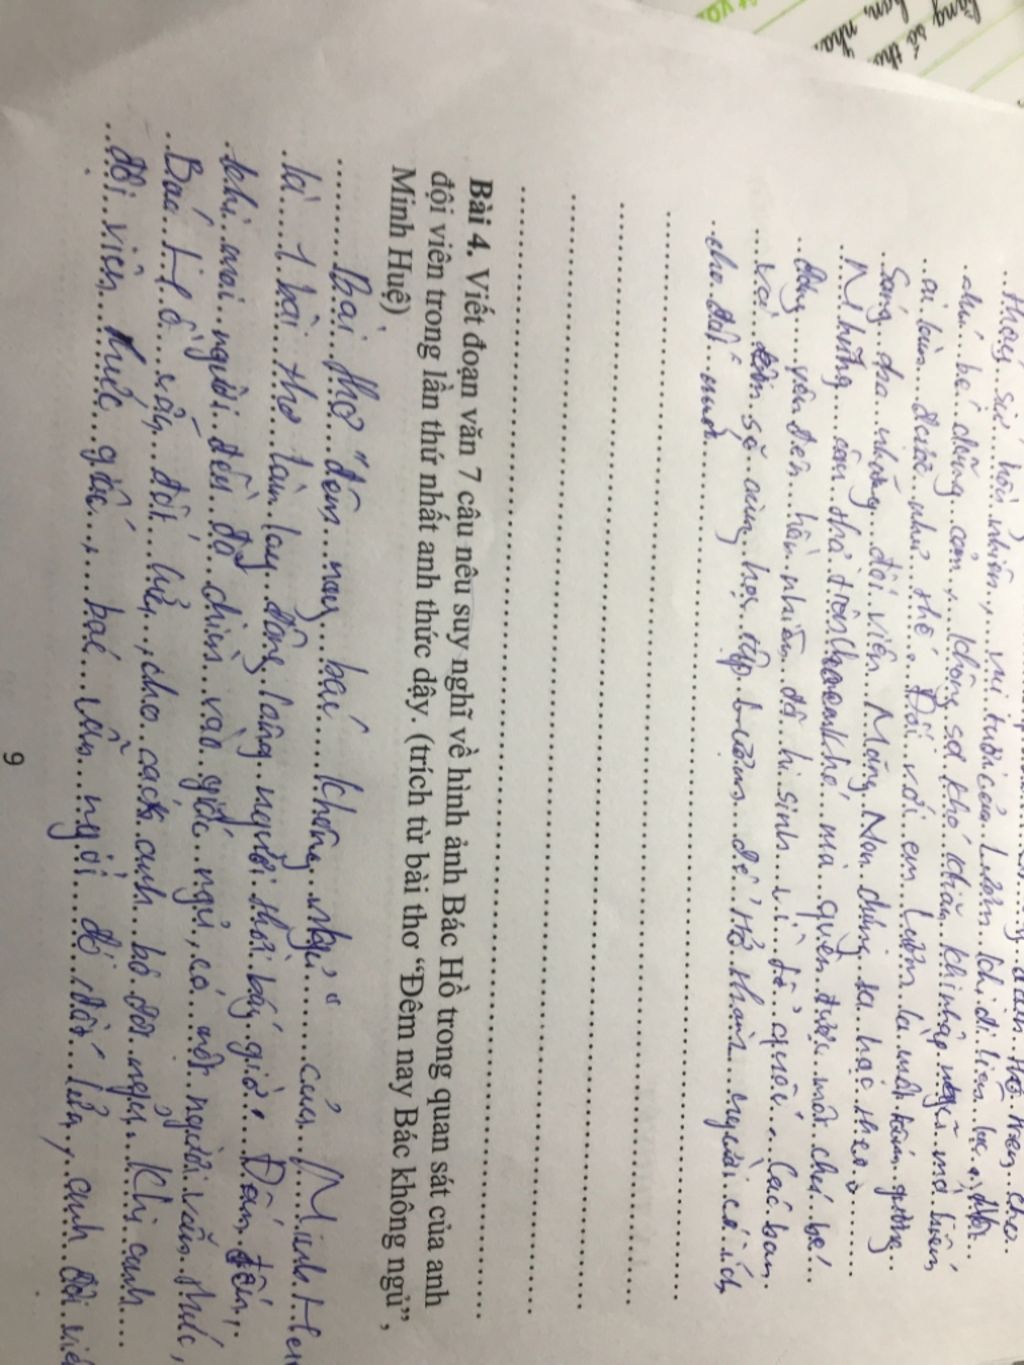 thấy sự hồn nhiên, vui tươi của Lượm khi đi liên lạc
chú bé dũng cảm, không sợ khó khăn khi nhập
ai làm được như thế. Đối với em Lượm là một tấm gương
Sáng cho những đội viên Măng Non chúng ta học theo.
Những mà quên được một chú bé
yêu đời hồn nhiên đã hi sinh vì tổ quốc. Các bạn
sẽ cùng học tập Lượm để trở thành người có ích
cho đất nước.
Bài 4. Viết đoạn văn 7 câu nêu suy nghĩ về hình ảnh Bác Hồ trong quan sát của anh
đội viên trong lần thứ nhất anh thức dậy. (trích từ bài thơ “Đêm nay Bác không ngủ”,
Minh Huệ)
Bài thơ "đêm nay bác không ngủ" của Minh
là 1 bài thơ làm lay động lòng người thời bấy giờ. Đêm đến,
khi mọi người đều đã chìm vào giấc ngủ, có một người vẫn thức,
Bác Hồ vẫn đốt lửa, cho các anh bộ đội ngủ. Khi anh
đội viên thức giấc, bác vẫn ngồi đó đốt lửa, anh đội
9